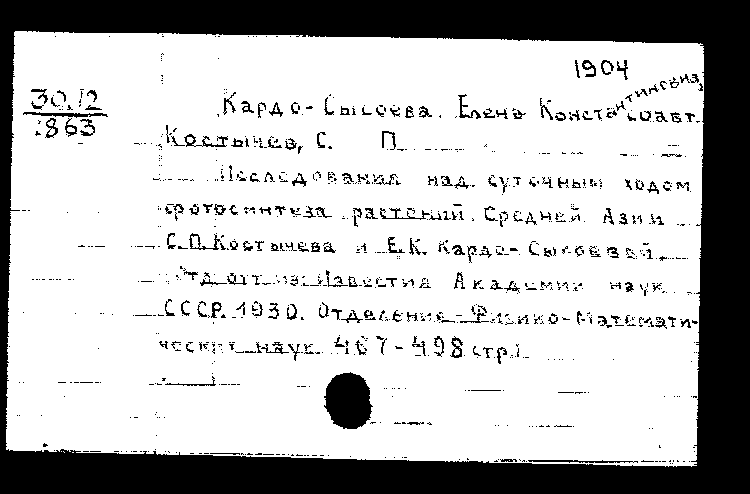 1904
30.12
1863
Кардо-Сысоева, Елена Константиновна, соавт.
Костычев, С. П.
Исследования над суточным ходом
фотосинтеза растений Средней Азии
С.П. Костычева и Е.К. Кардо-Сысоевой.
Отд. отт. из: Известия Академии наук
СССР. 1930. Отделение Физико-Математи-
ческих наук 467-498 стр.)